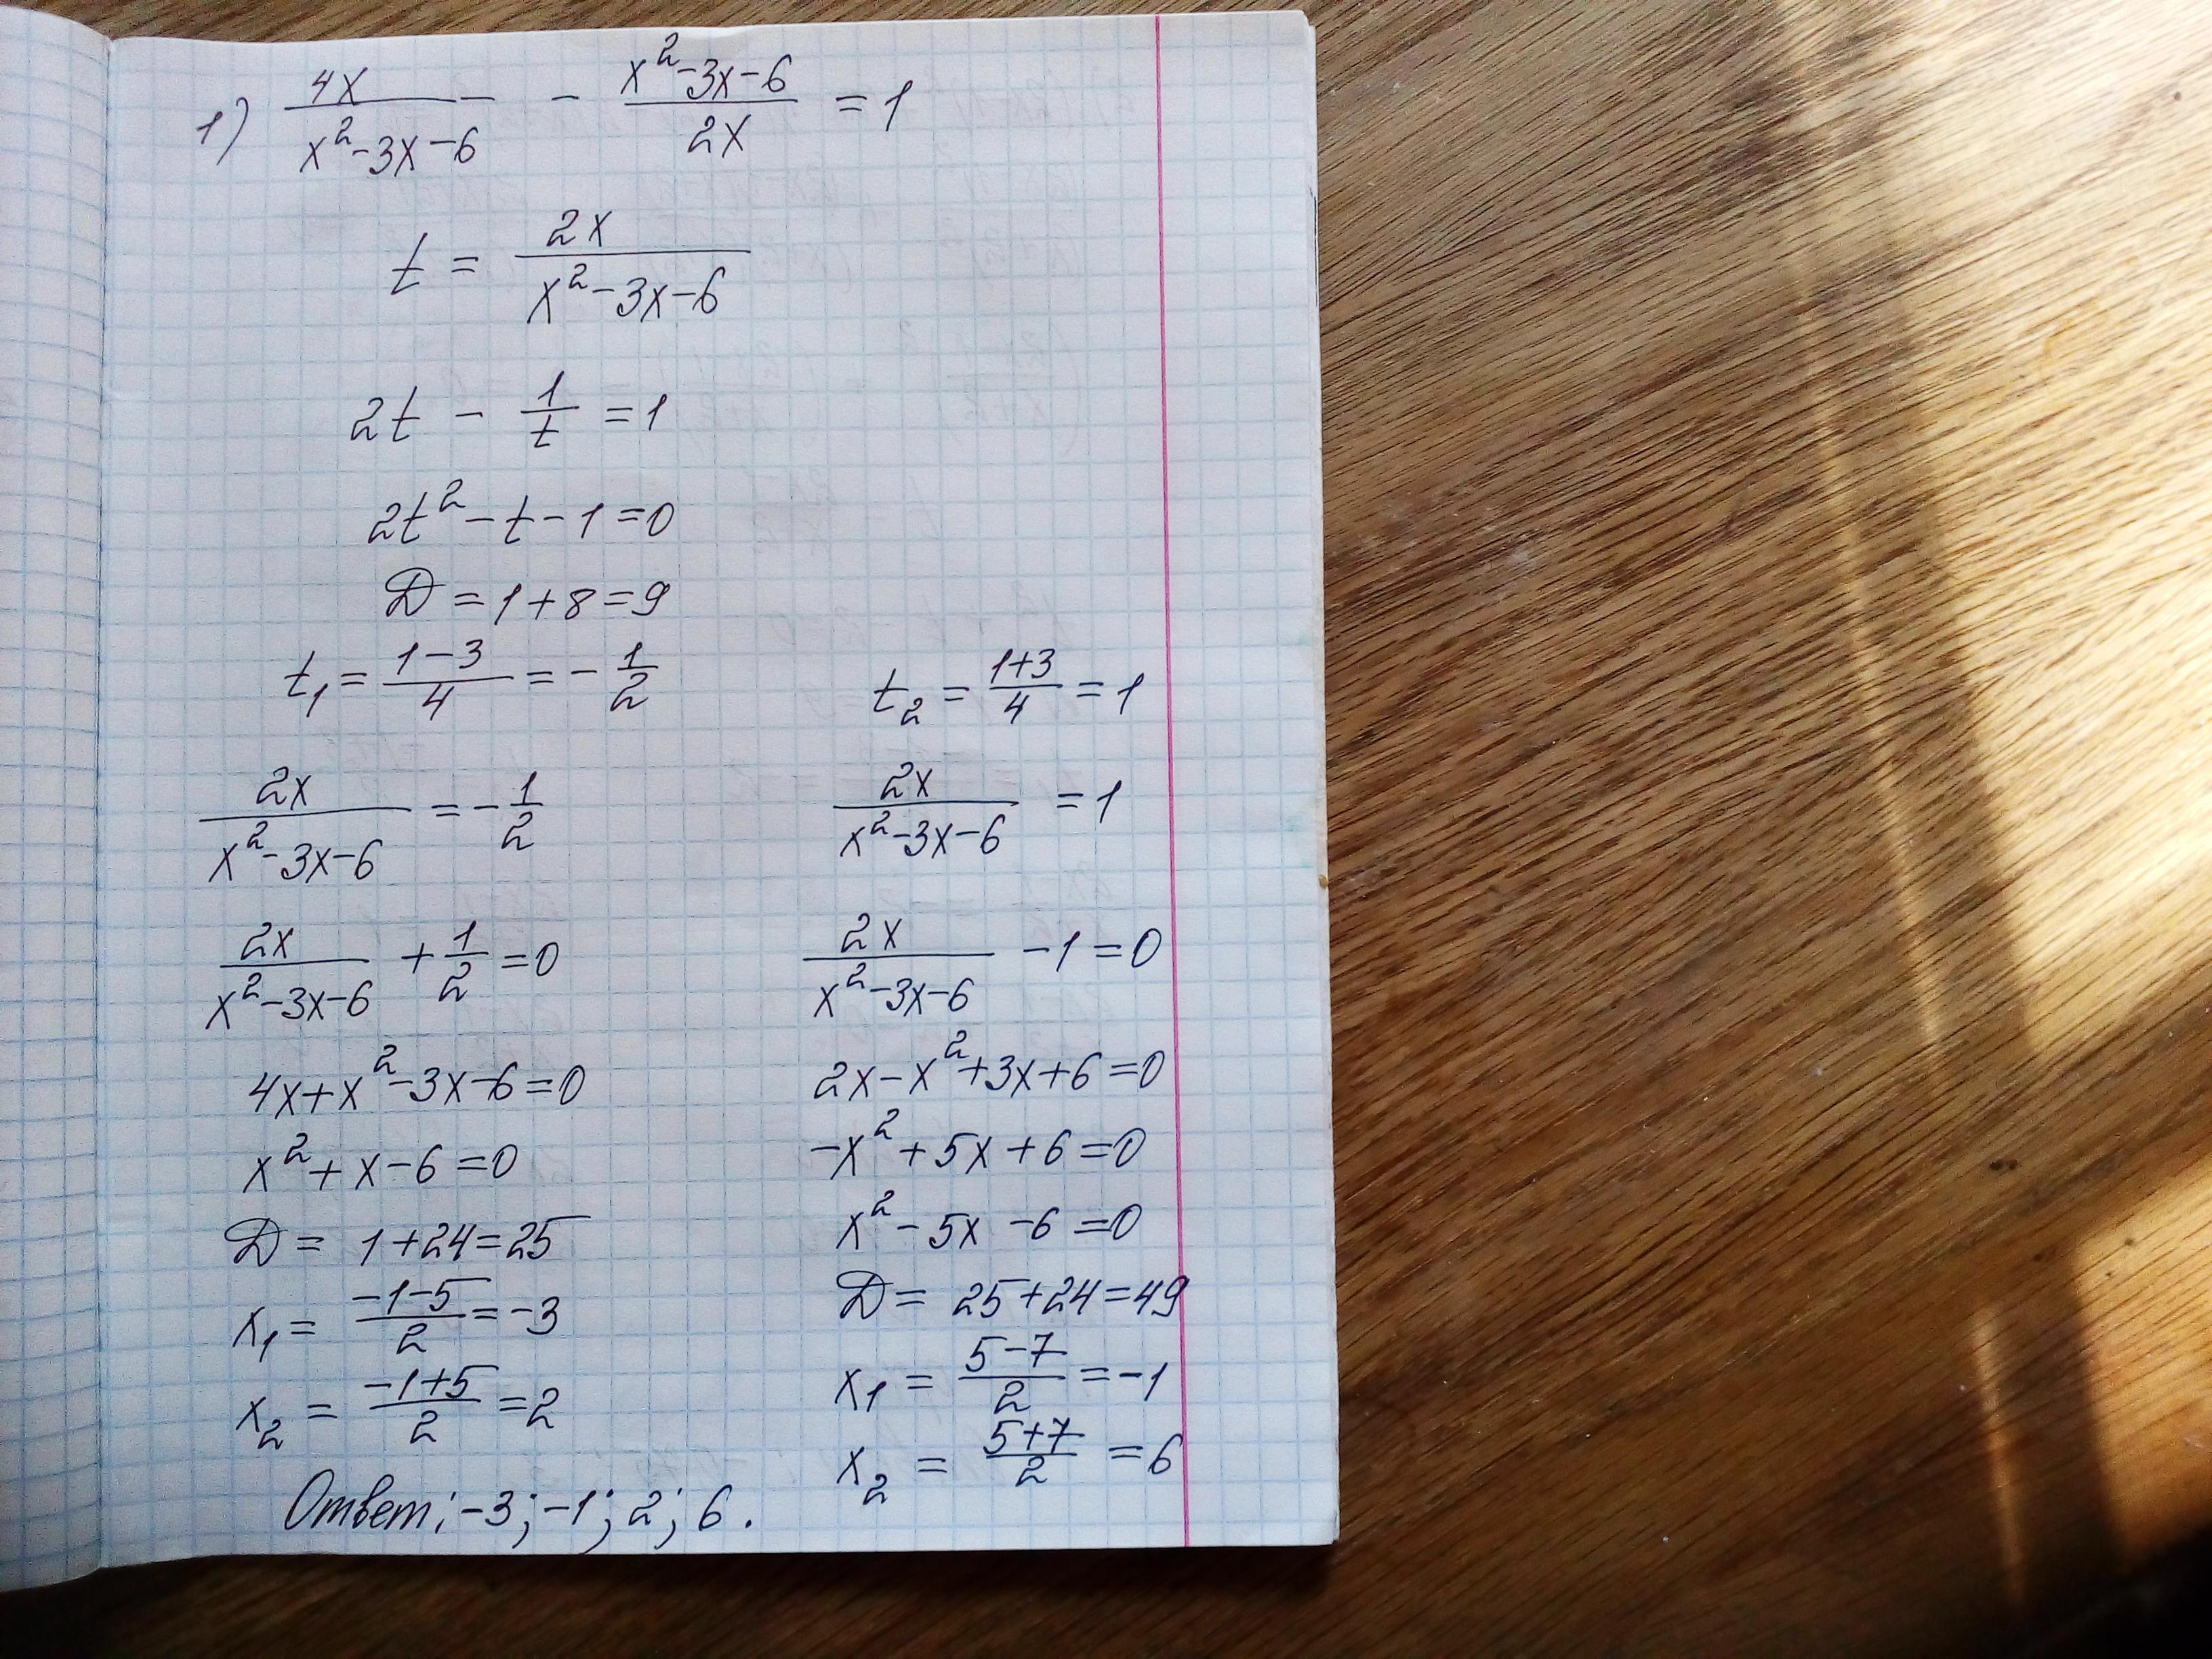 1) 4x/(x²-3x-6) - (x²-3x-6)/2x = 1
t = 2x/(x²-3x-6)
2t - 1/t = 1
2t² - t - 1 = 0
D = 1+8 = 9
t₁ = (1-3)/4 = -1/2
t₂ = (1+3)/4 = 1
2x/(x²-3x-6) = -1/2
2x/(x²-3x-6) + 1/2 = 0
4x+x²-3x-6=0
x²+x-6=0
D = 1+24=25
x₁ = (-1-5)/2 = -3
x₂ = (-1+5)/2 = 2
2x/(x²-3x-6) = 1
2x/(x²-3x-6) - 1 = 0
2x-x²+3x+6=0
-x²+5x+6=0
x²-5x-6=0
D = 25+24=49
x₁ = (5-7)/2 = -1
x₂ = (5+7)/2 = 6
Ответ: -3; -1; 2; 6.